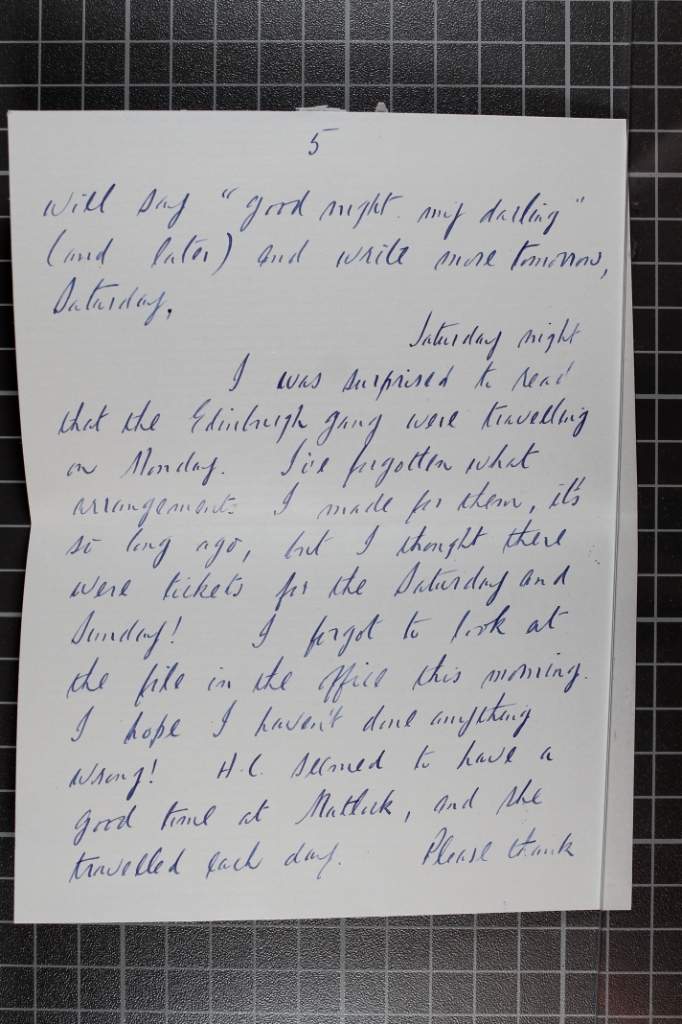 5
will say "good night my darling"
(and later) and write more tomorrow,
Saturday.
Saturday night
I was surprised to read
that the Edinburgh gang were travelling
on Monday. I've forgotten what
arrangements I made for them, it's
so long ago, but I thought there
were tickets for the Saturday and
Sunday! I forgot to look at
the file in the office this morning.
I hope I haven't done anything
wrong! H.C. seemed to have a
good time at Matlock, and she
travelled each day. Please thank